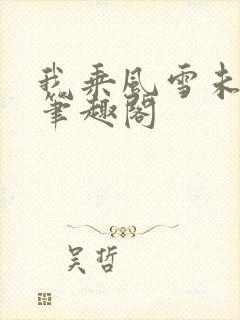 我乘风雪未
笔趣阁
吴哲